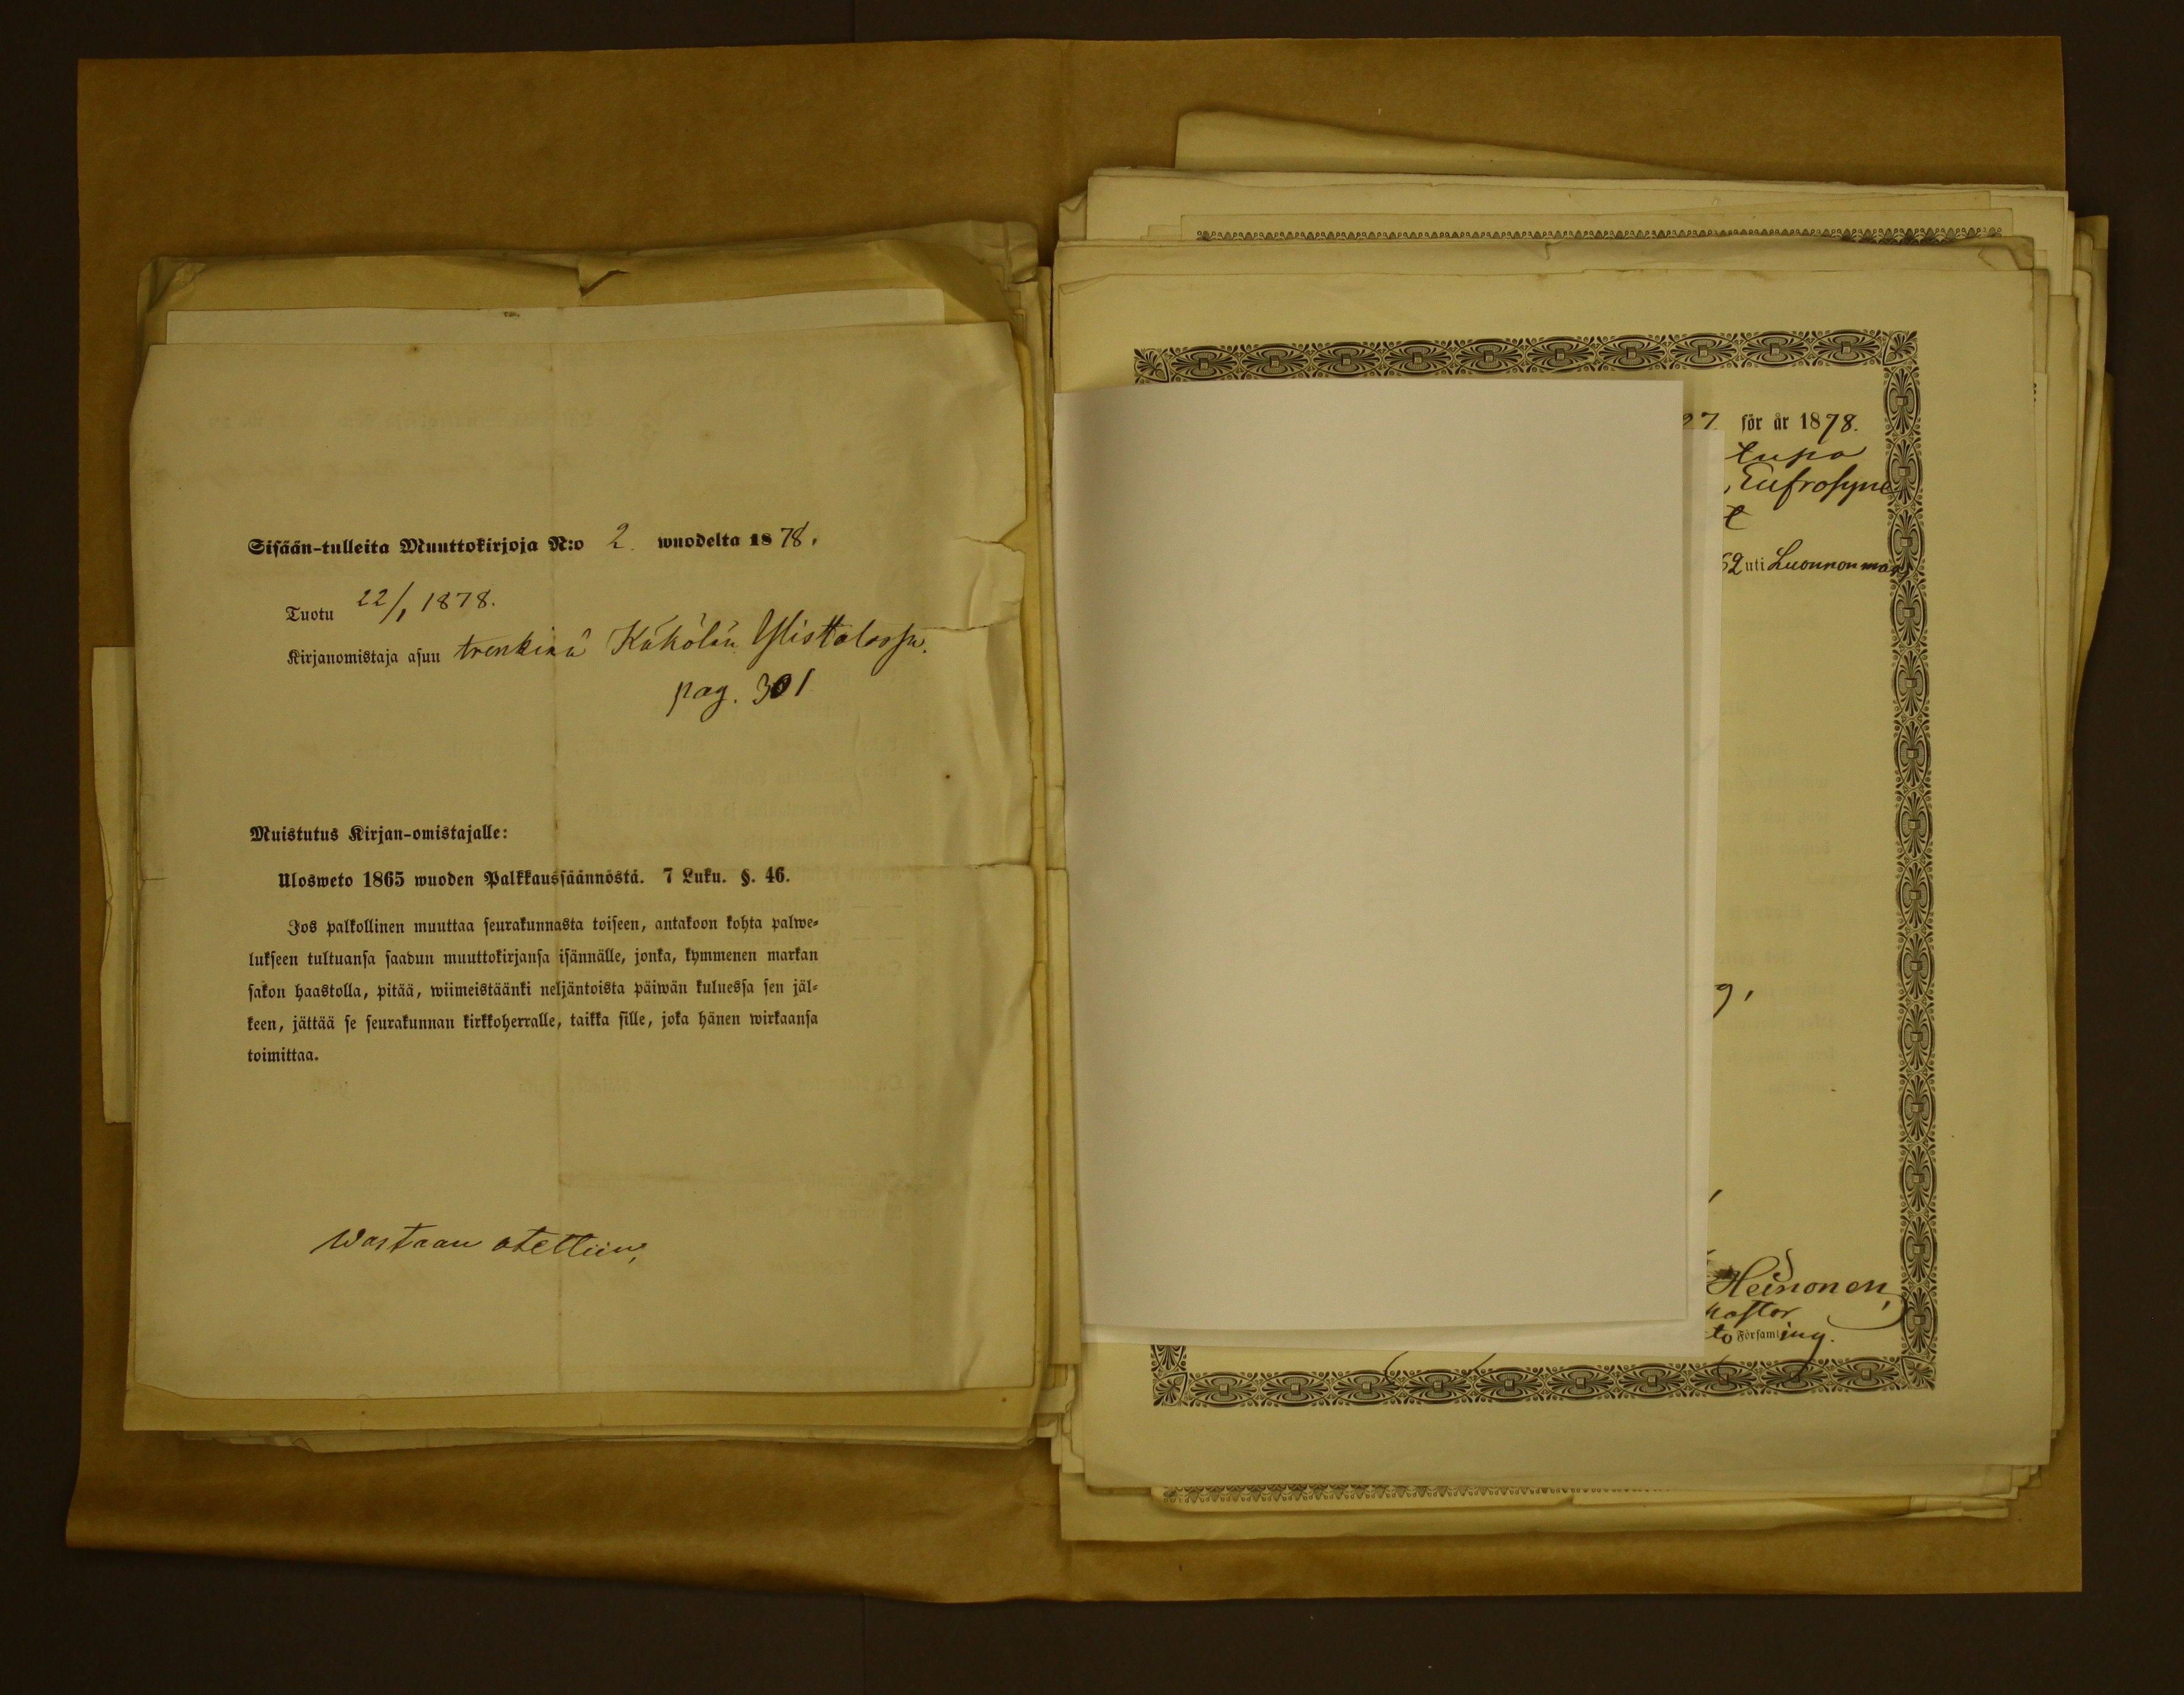 Sisään-tulleita Muuttokirjoja N:o 2. wuodelta 1878.
Tuotu 22/1 1878.
Kirjanomistaja asuu trenkinä Käkölän Ylistalossa.
pag. 301
Muistutus Kirjan-omistajalle:
Ulosweto 1865 wuoden Palkkaussäännöstä. 7 Luku. §. 46.
Jos palkollinen muuttaa seurakunnasta toiseen, antakoon kohta palwe-
lukseen tultuansa saadun muuttokirjansa isännälle, jonka, kymmenen markan
sakon haastolla, pitää, wiimeistäänki neljäntoista päiwän kuluessa sen jäl-
keen, jättää se seurakunnan kirkkoherralle, taikka sille, joka hänen wirkaansa
toimittaa.
Wastaan otettiin;
27 för år 1878.
tupa
, Eufrosyne
t
62 uti Luonnonmaa
g,
Heinonen,
Pastor
to Församling.